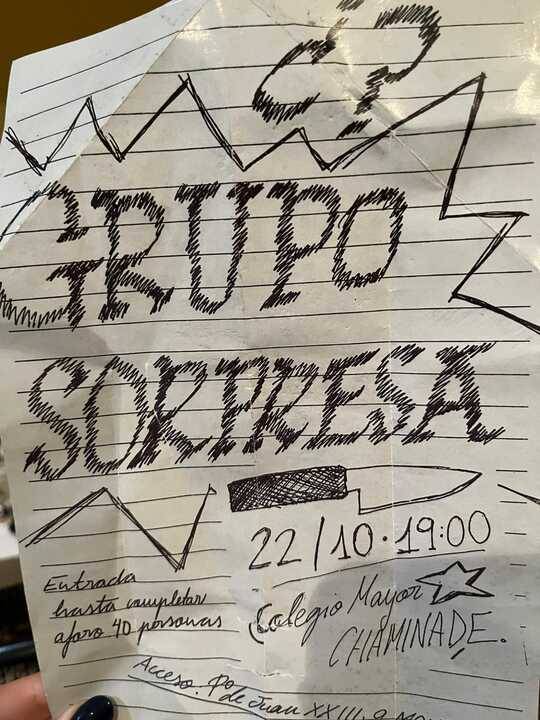 ¿?
GRUPO
SORPRESA
22/10·19:00
Entrada
hasta completar
aforo 40 personas
Colegio Mayor
CHAMINADE.
Acceso. Pº de Juan XXIII, 9